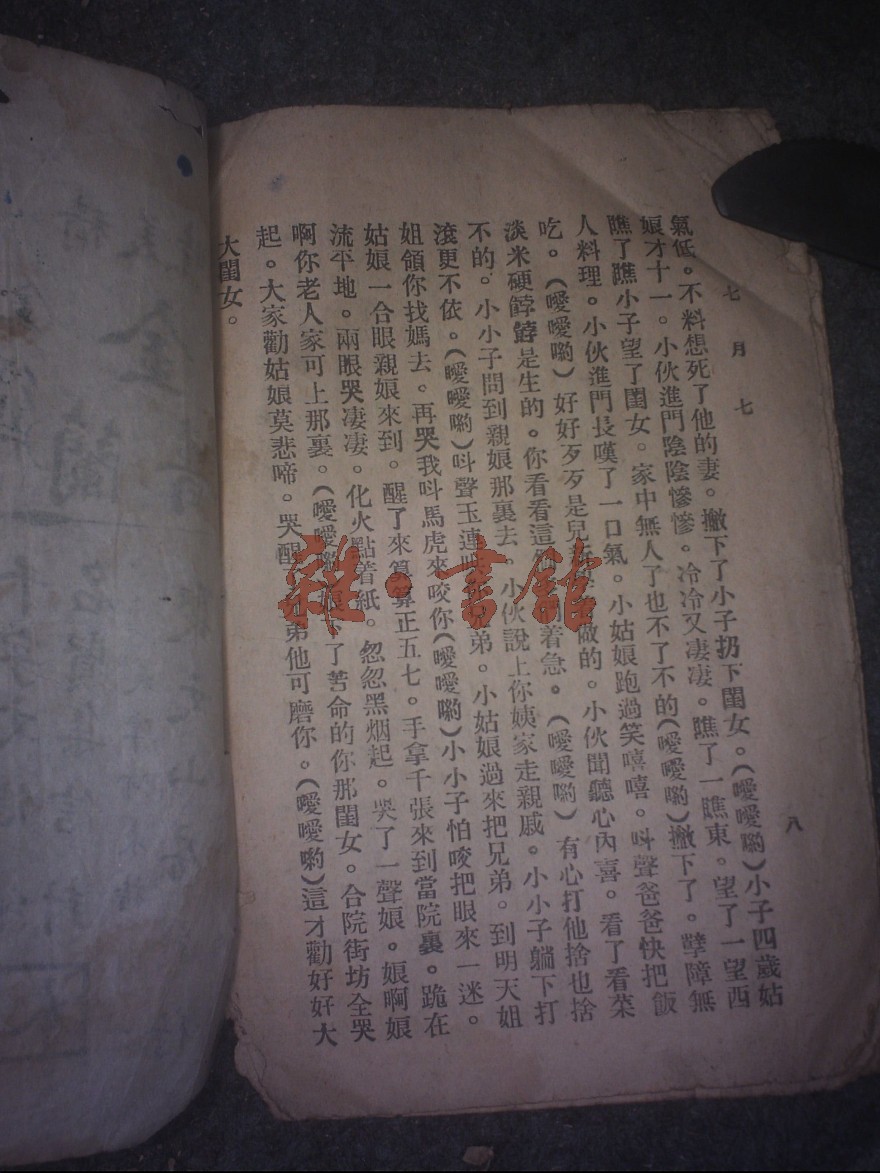 七月七
八
氣低。不料想死了他的妻。撇下了小子扔下閨女。(噯噯喲)小子四歲姑
娘才十一。小伙進門陰陰慘慘。冷冷又凄凄。瞧了一瞧東。望了一望西
瞧了瞧小子望了閨女。家中無人了也不了不的(噯噯喲)撇下了。孽障無
人料理。小伙進門長嘆了一口氣。小姑娘跑過笑嘻嘻。呌聲爸爸快把飯
吃。(噯噯喲)好好歹歹是兒 做的。小伙聞聽心內喜。看了看菜
淡米硬餑餑是生的。你看看這 着急。(噯噯喲)有心打他捨也捨
不的。小小子問到親娘那裏去。小伙說上你姨家走親戚。小小子躺下打
滾更不依。(噯噯喲)呌聲玉連 兄弟。小姑娘過來把兄弟。到明天姐
姐領你找媽去。再哭我呌馬虎來咬你(噯噯喲)小小子怕咬把眼來一迷。
姑娘一合眼親娘來到。醒了來算算正五七。手拿千張來到當院裏。跪在
流平地。兩眼哭凄凄。化火點着紙。忽忽黑烟起。哭了一聲娘。娘啊娘
啊你老人家可上那裏。(噯噯喲) 了苦命的你那閨女。合院街坊全哭
起。大家勸姑娘莫悲啼。哭醒 弟他可磨你。(噯噯喲)這才勸好好大
大閨女。
雜·書館